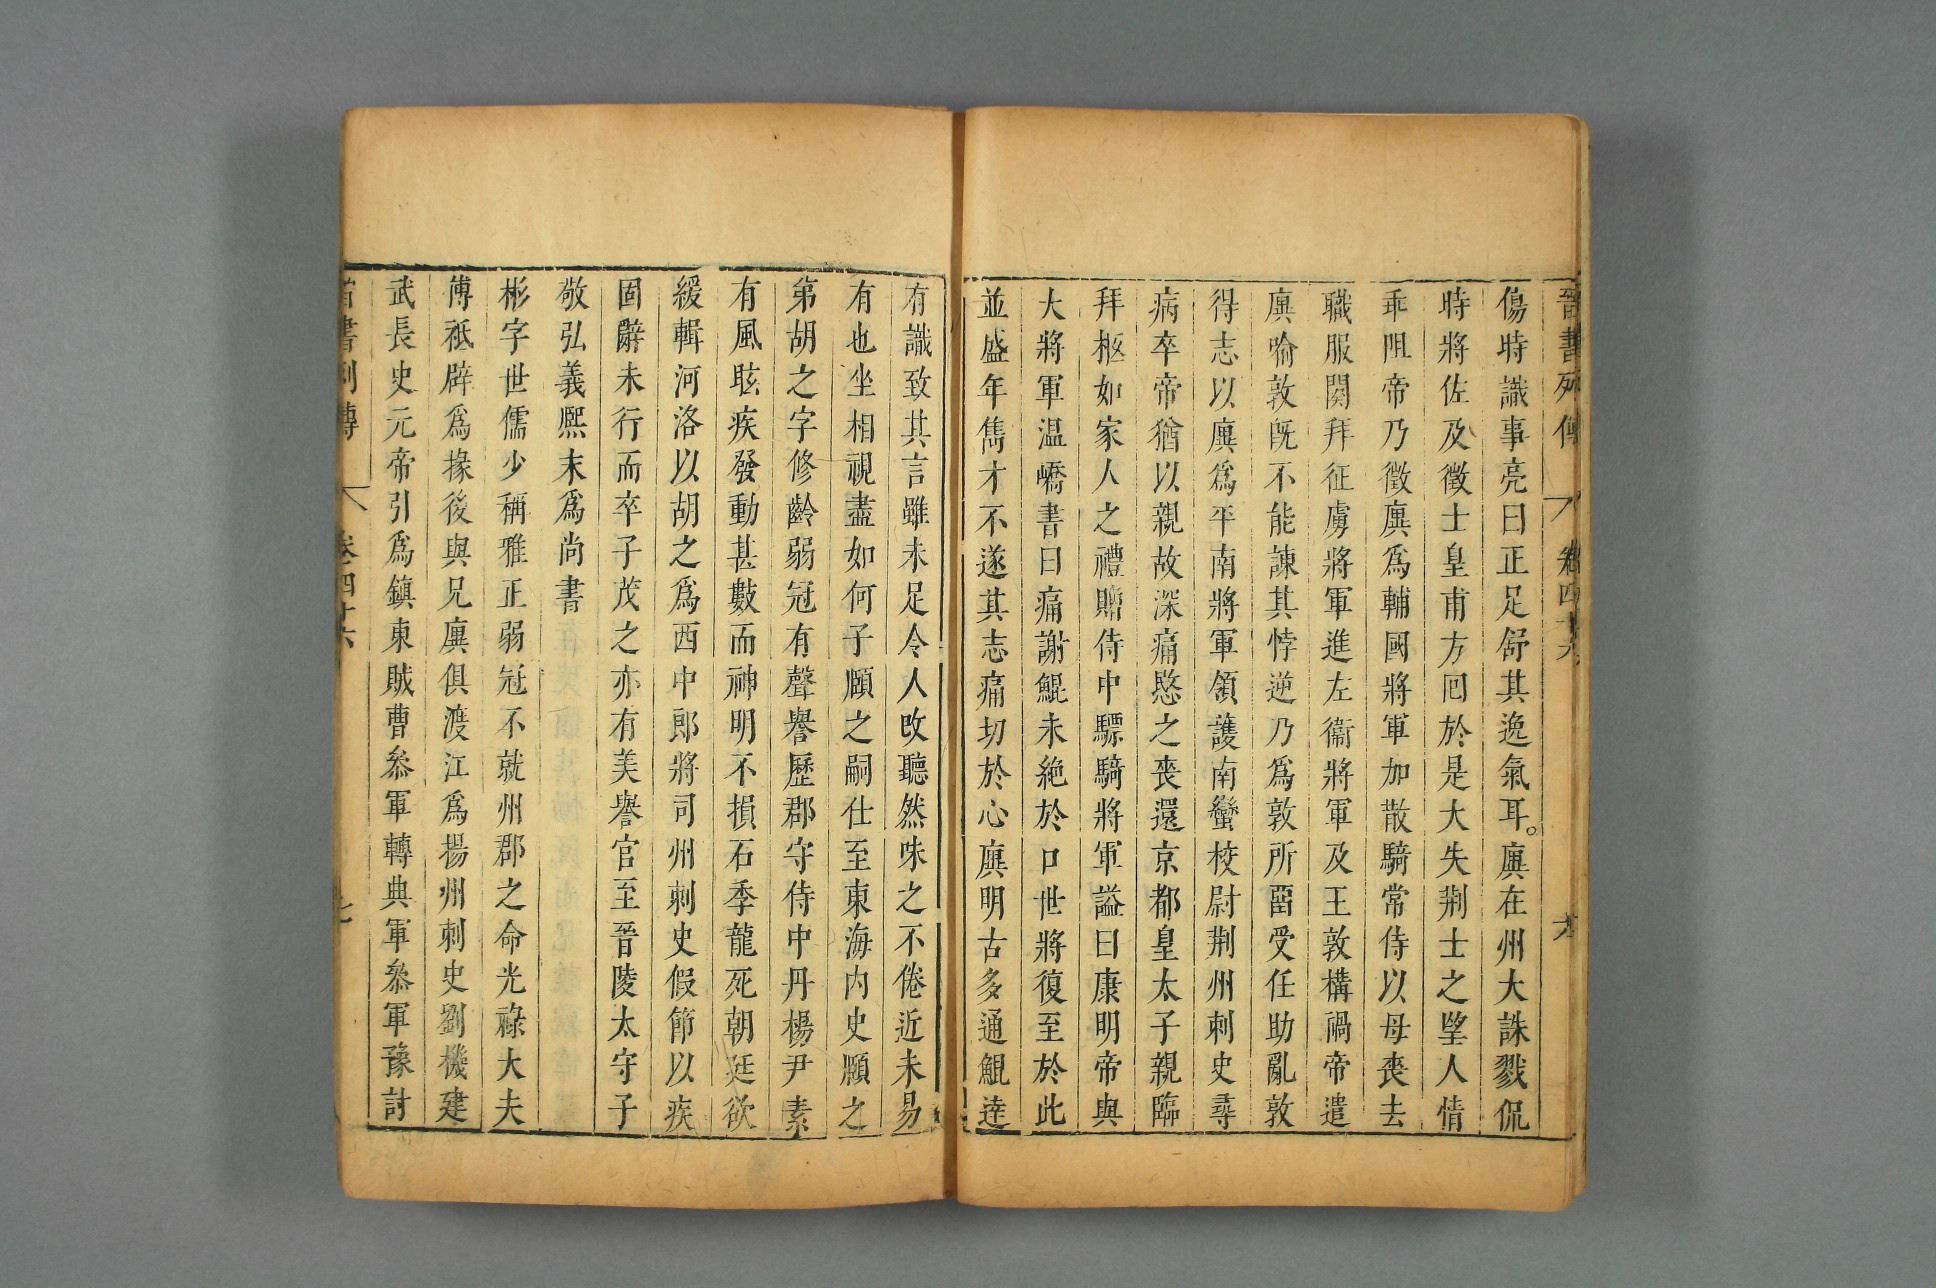 晉書列傳 卷四十六 六
傷時識事亮曰正足舒其逸氣耳。廙在州大誅戮侃
時將佐及徵士皇甫方回於是大失荆士之望人情
乖阻帝乃徵廙爲輔國將軍加散騎常侍以母喪去
職服闋拜征虜將軍進左衞將軍及王敦構禍帝遣
廙喻敦既不能諫其悖逆乃爲敦所畱受任助亂敦
得志以廙爲平南將軍領護南蠻校尉荆州刺史尋
病卒帝猶以親故深痛愍之喪還京都皇太子親臨
拜柩如家人之禮贈侍中驃騎將軍謚曰康明帝與
大將軍温嶠書曰痛謝鯤未絶於口世將復至於此
並盛年雋才不遂其志痛切於心廙明古多通鯤達
有識致其言雖未足令人改聽然味之不倦近未易
有也坐相視盡如何子頤之嗣仕至東海内史頤之
第胡之字修齡弱冠有聲譽歷郡守侍中丹楊尹素
有風眩疾發動甚數而神明不損石季龍死朝廷欲
緩輯河洛以胡之爲西中郎將司州刺史假節以疾
固辭未行而卒子茂之亦有美譽官至晉陵太守子
敬弘義熙末爲尚書
彬字世儒少稱雅正弱冠不就州郡之命光祿大夫
傅祗辟爲掾後與兄廙俱渡江爲揚州刺史劉機建
武長史元帝引爲鎮東賊曹叅軍轉典軍叅軍豫討
晉書列傳 卷四十六 七